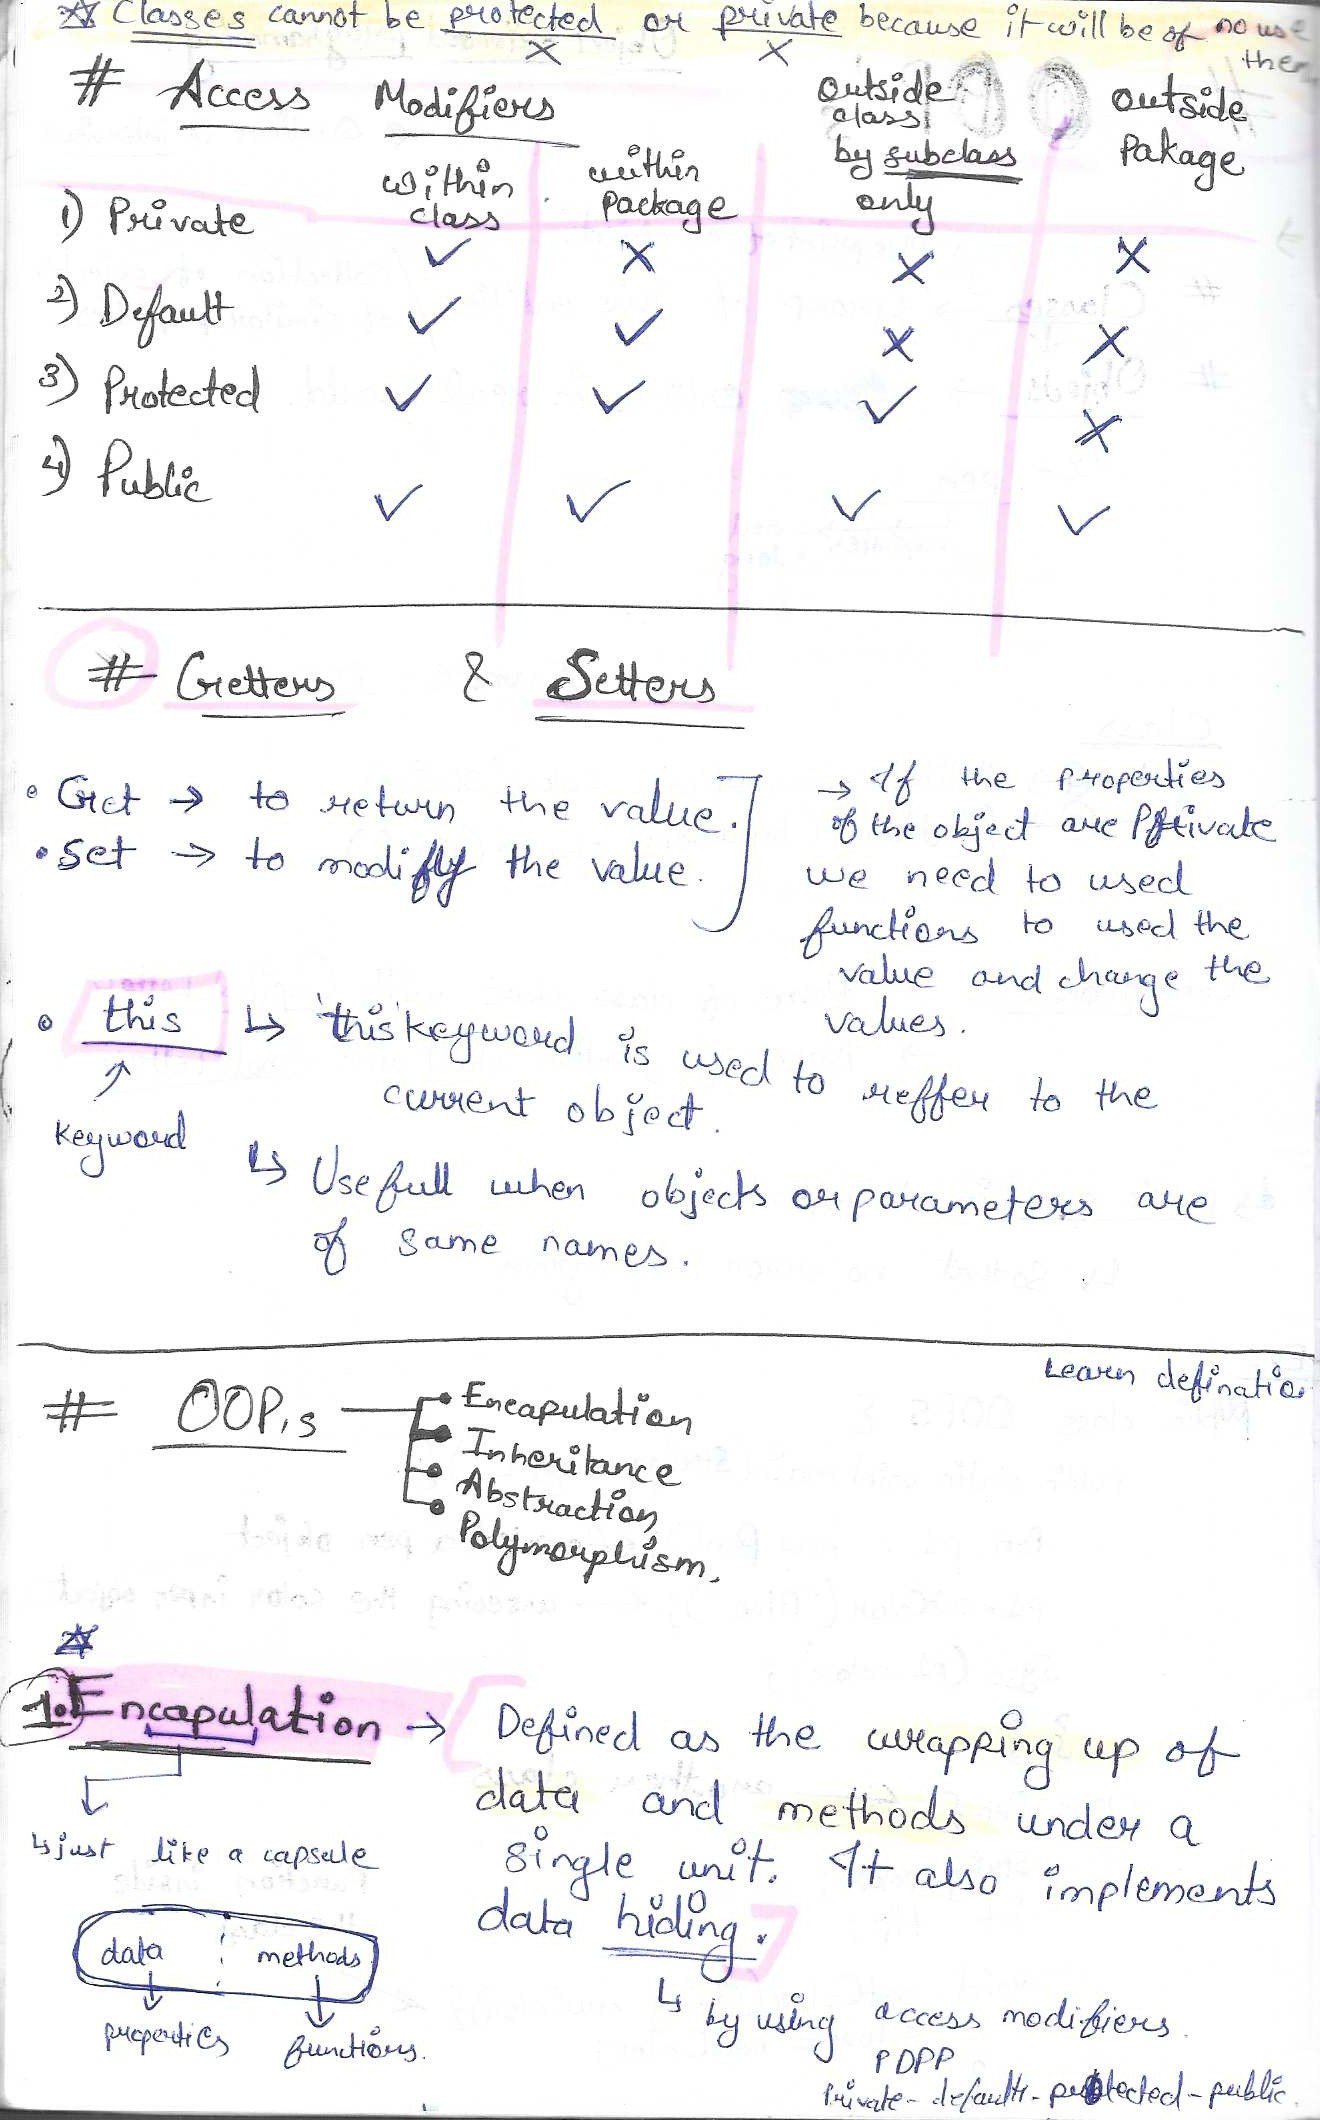 Classes cannot be protected or private because it will be of no use then
# Access Modifiers
within class within Package outside class by subclass only outside Pakage
1) Private ✓ × × ×
2) Default ✓ ✓ × ×
3) Protected ✓ ✓ ✓ ×
4) Public ✓ ✓ ✓ ✓
# Getters & Setters
• Get → to return the value.
• Set → to modifly the value.
→ If the properties
of the object are Private
we need to used
functions to used the
value and change the
values.
• this ↳ 'this' keyword is used to reffer to the
current object.
keyword
↳ Usefull when objects or parameters are
of same names.
Learn definatio
# OOP,s
• Encapulation
• Inheritance
• Abstraction
• Polymorphism.
1. Encapulation → Defined as the wrapping up of
data and methods under a
single unit. It also implements
data hiding.
↳ just like a capsule
data methods
properties functions.
↳ by using access modifiers.
PDPP
Private - default - protected - public.